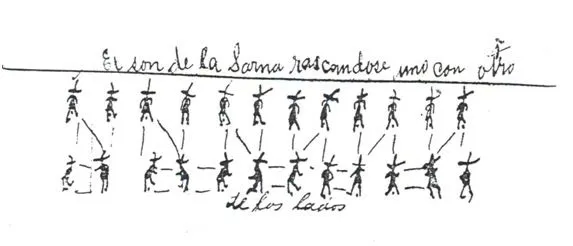 El son de la Sarna rascandose uno con otro
de los lados